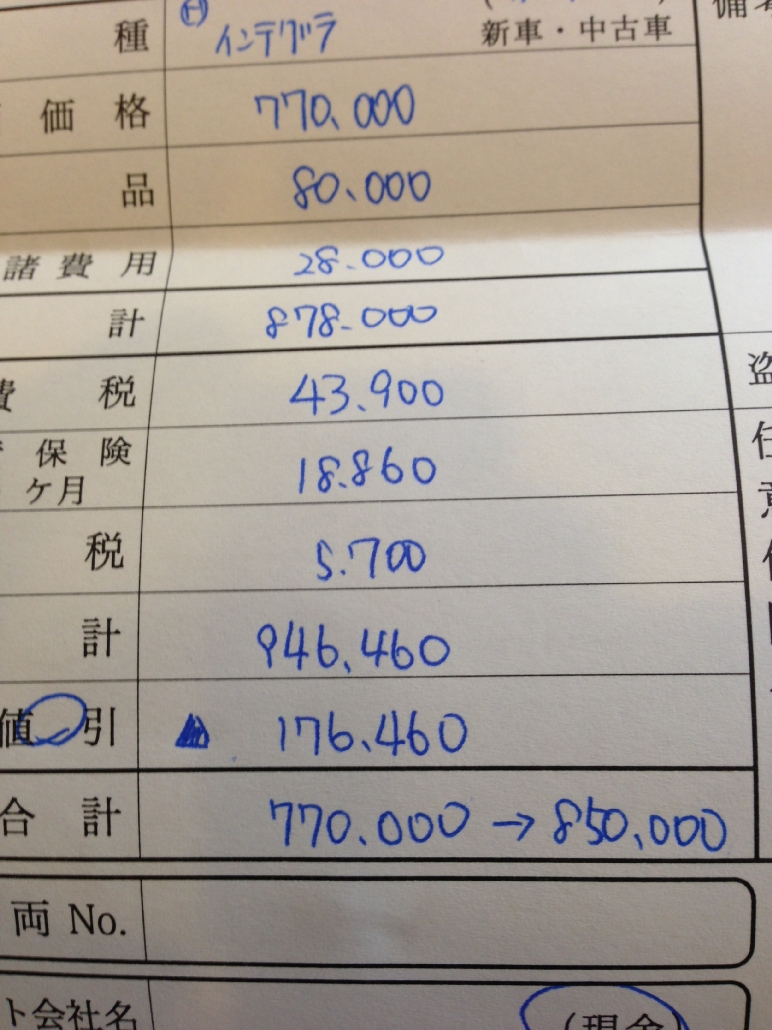 種 Ⓗ インテグラ 新車・中古車
価格 770.000
品 80.000
諸費用 28.000
計 878.000
費税 43.900
保険 18.860
ケ月
税 5.700
計 946.460
値引 ▲ 176.460
合計 770.000 → 850,000
両 No.
ト会社名 (現金)
備考
盗
任
意